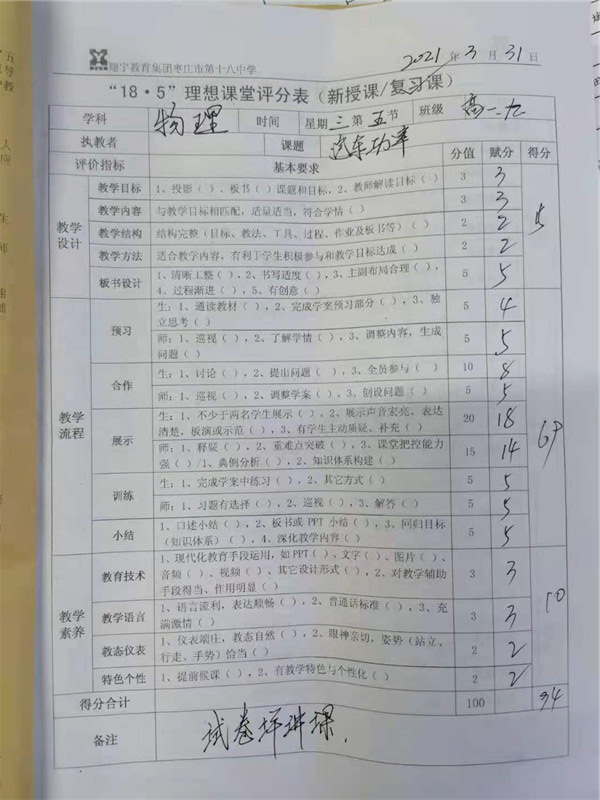 翔宇教育集团枣庄市第十八中学
2021年3月31日
“18·5”理想课堂评分表（新授课/复习课）
学科 物理 时间 星期三第五节 班级 高一.九
执教者 课题 汽车功率 分值 赋分 得分
评价指标 基本要求
教学设计
教学目标 1、投影（ ）、板书（ ）课题和目标，2、教师解读目标（ ） 3 3
教学内容 与教学目标相匹配，适量适当，符合学情（ ） 3 3
教学结构 结构完整（目标、教法、工具、过程、作业及板书等）（ ） 2 2
教学方法 适合教学内容，有利于学生积极参与和教学目标达成（ ） 2 2
板书设计 1、清晰工整（ ），2、书写适度（ ），3、主副布局合理（ ），
4、过程渐进（ ），5、有创意（ ） 5 5
15
教学流程
预习 生：1、通读教材（ ），2、完成学案预习部分（ ），3、独
立思考（ ） 5 4
师：1、巡视（ ），2、了解学情（ ），3、调整内容，生成
问题（ ） 5 5
合作 生：1、讨论（ ），2、提出问题（ ），3、全员参与（ ） 10 8
师：1、巡视（ ），2、调整学案（ ），3、创设问题（ ） 5 5
展示 生：1、不少于两名学生展示（ ），2、展示声音宏亮、表达
清楚，板演或示范（ ），3、有学生主动质疑、补充（ ） 20 18
师：1、释疑（ ），2、重难点突破（ ），3、课堂把控能力
强（ ）/1、典例分析（ ），2、知识体系构建（ ） 15 14
训练 生：1、完成学案中练习（ ），2、其它方式（ ） 5 5
师：1、习题有选择（ ），2、巡视（ ），3、解答（ ） 5 5
小结 1、口述小结（ ），2、板书或 PPT 小结（ ），3、回归目标
（知识体系）（ ），4、深化教学内容（ ） 5 5
69
教学素养
教育技术 1、现代化教育手段运用，如 PPT（ ）、文字（ ）、图片（ ）、
音频（ ）、视频（ ）、其它设计形式（ ），2、对教学辅助
手段得当、作用明显（ ） 3 3
教学语言 1、语言流利，表达顺畅（ ），2、普通话标准（ ），3、充
满激情（ ） 3 3
教态仪表 1、仪表端庄，教态自然（ ），2、眼神亲切，姿势（站立、
行走、手势）恰当（ ） 2 2
特色个性 1、提前候课（ ），2、有教学特色与个性化（ ） 2 2
10
得分合计 100 94
备注 试卷坪讲课.